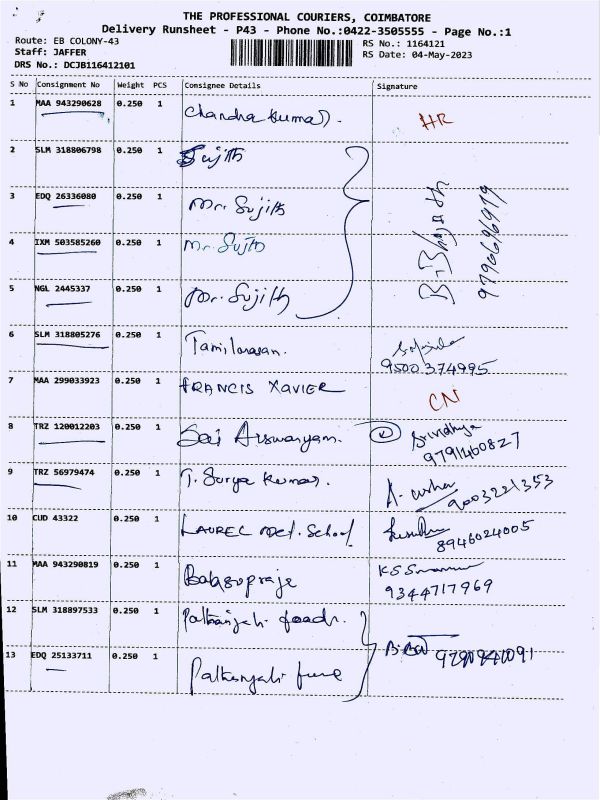 THE PROFESSIONAL COURIERS, COIMBATORE
Delivery Runsheet - P43 - Phone No.:0422-3505555 - Page No.:1
Route: EB COLONY-43
Staff: JAFFER
DRS No.: DCJB116412101
RS No.: 1164121
RS Date: 04-May-2023
S No Consignment No Weight PCS Consignee Details Signature
1 MAA 943290628 0.250 1 Chandra Kumar. HR
2 SLM 318806798 0.250 1 Sujith
3 EDQ 26336080 0.250 1 Mr. Sujith
4 IXM 503585260 0.250 1 Mr. Sujith
5 NGL 2445337 0.250 1 Mr. Sujith
6 SLM 318805276 0.250 1 Tamilarasan.
9500374995
7 MAA 299033923 0.250 1 FRANCIS XAVIER CN
8 TRZ 120012203 0.250 1 Sai Aiswaryam. Srividhya
9791400827
9 TRZ 56979474 0.250 1 T. Surya Kumar. A. usha
9003221353
10 CUD 43322 0.250 1 LAUREL Met. School
8946024005
11 MAA 943290819 0.250 1
9344717969
12 SLM 318897533 0.250 1
13 EDQ 25133711 0.250 1